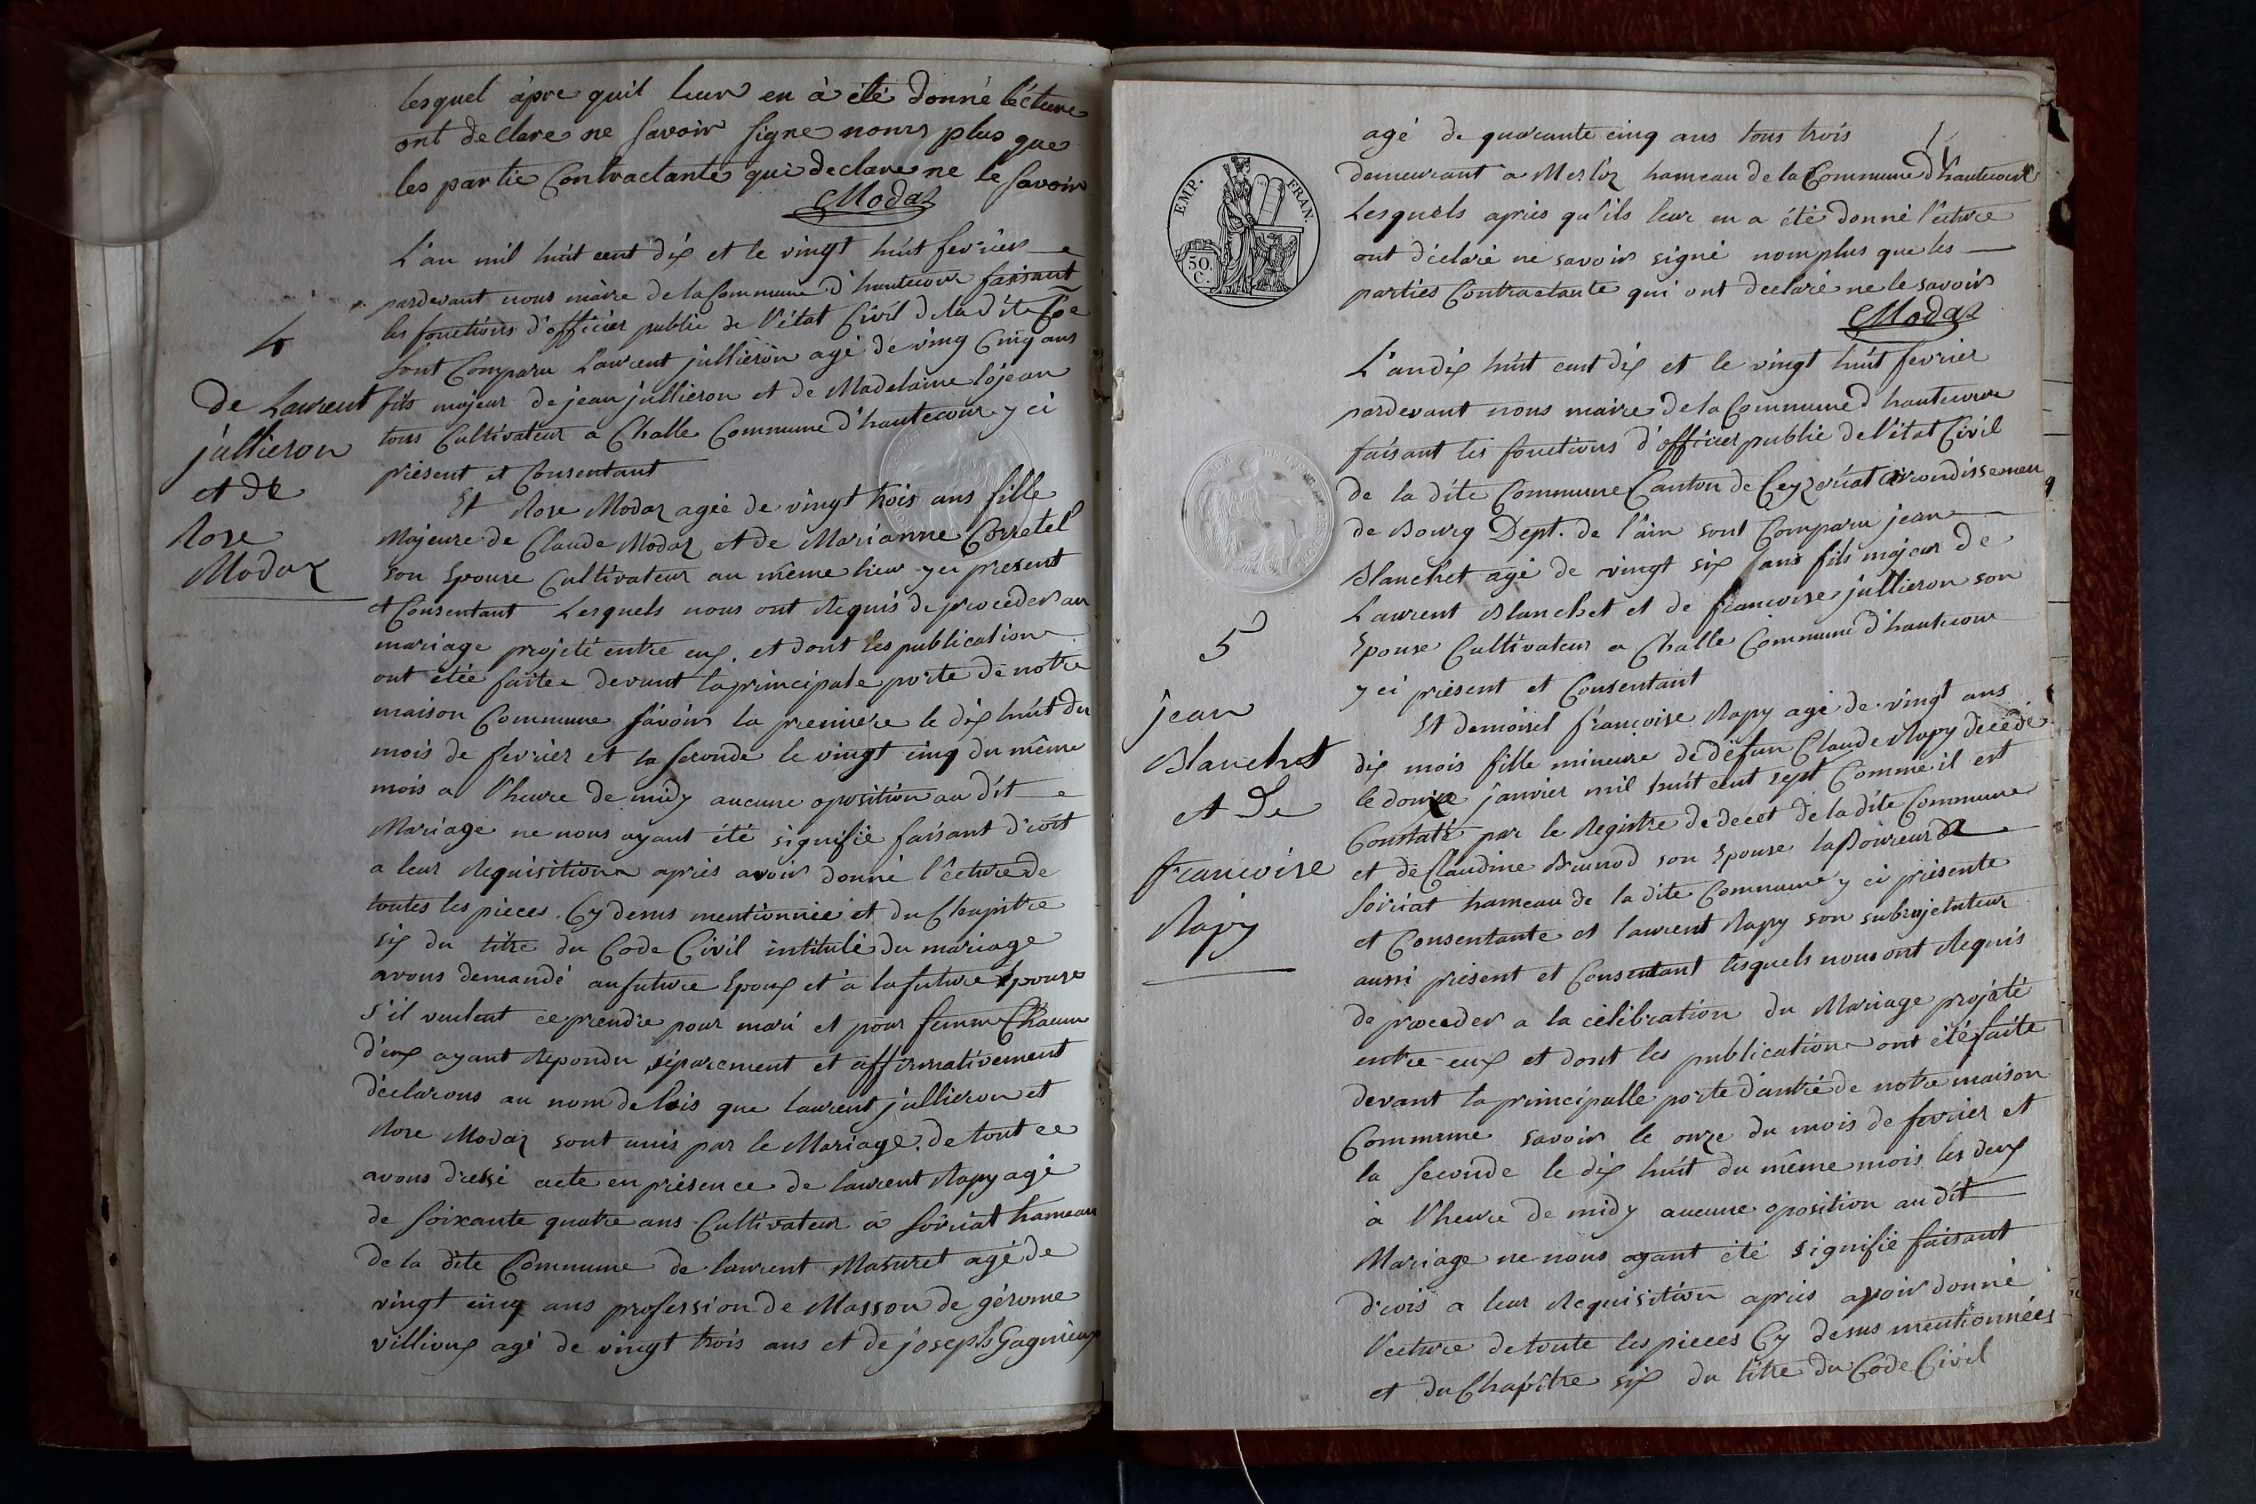 lesquel àpre quil leur en à été donné lécture
ont declare ne savoir signe noms plus que
les partie Contractante qui declare ne le savoir
Modaz
L'an mil huit cent dix et le vingt huit fevrier
pardevant nous maire de la Commune d'hautecour faisant
les fonctions d'officier public de l'état Civil de la dite Coe
sont Comparu Laurent jullieron agé de ving Cinq ans
fils majeur de jean jullieron et de Madelaine lojean
tous Cultivateur a Challe Commune d'hautecour y ci
présent et Consentant
Et Rose Modaz agée de vingt trois ans fille
Majeure de Claude Modaz et de Marianne Corretel
son Epouse Cultivateur au même lieu y ci present
et Consentant Lesquels nous ont Requis de proceder au
mariage projeté entre eux. et dont les publication
ont étée faite devant la principale porte de notre
maison Commune savoir la premiere le dix huit du
mois de fevrier et la seconde le vingt cinq du même
mois a l'heure de midy aucune oposition au dit
Mariage ne nous ayant été signifié faisant droit
a leur Requisition après avoir donné l'ecture de
toutes les pieces Cy desus mentionnée et du Chapitre
six du titre du Code Civil intitulé du mariage
avons demandé au future Epoux et à la future Epouse
s'il veulent ce prendre pour mari et pour femme Chacun
d'eux ayant Repondu séparement et affirmativement
déclarons au nom de lois que laurent jullieron et
Rose Modaz sont unis par le Mariage. de tout ce
avons dressé acte en présence de laurent Rapy agé
de soixante quatre ans Cultivateur a soiriat hameau
de la dite Commune de laurent Masuret agé de
vingt cinq ans profession de Masson de gérome
villioux agé de vingt trois ans et de joseph Gagnieux
4
de Laurent
jullieron
et de
Rose
Modaz
agé de quarante cinq ans tous trois
demeurant a Merloz hameau de la Commune d'hautecour
Lesquels après qu'ils leur en a été donné l'ecture
ont déclaré ne savoir signé nomplus que les
parties Contractante qui ont declaré ne le savoir
Modaz
EMP. FRAN.
50. C.
L'an dix huit cent dix et le vingt huit fevrier
pardevant nous maire de la Commune d'hautecour
faisant les fonctions d'officier public de l'état Civil
de la dite Commune Canton de Ceyzeriat arrondissemen
de Bourg Dept. de l'ain sont Comparu jean
Blanchet agé de vingt six ans fils majeur de
Laurent Blanchet et de francoise jullieron son
Epouse Cultivateur a Challe Commune d'hautecour
y ci présent et Consentant
Et demoisel francoise Rapy agé de vingt ans
dix mois fille mineure de défun Claude Rapy decédé
le douze janvier mil huit cent sept Comme il est
Constaté par le Registre de decet de la dite Commune
et de Claudine Brunod son Epouse laboureur a
soiriat hameau de la dite Commune y ci présente
et Consentante et laurent Rapy son subrojetuteur
aussi présent et Consentant lesquels nous ont Requis
de proceder a la célébration du Mariage projeté
entre-eux et dont les publication ont été faite
devant la principalle porte d'antrée de notre maison
Commune savoir le onze du mois de fevrier et
la seconde le dix huit du même mois les deux
à l'heure de midy aucune oposition au dit
Mariage ne nous ayant été signifié faisant
drois a leur Requisition après avoir donné
l'ecture de toute les pieces Cy desus mentionnées
et du Chapitre six du titre du Code Civil
5
jean
Blanchet
et de
francoise
Rapy